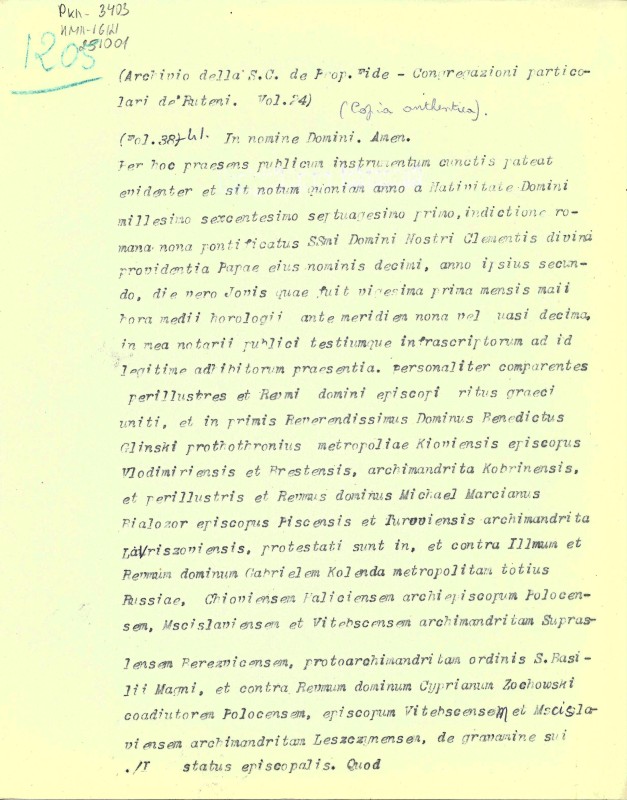 Ркп - 3403
1203
(Archivio della S.C. de Prop. Fide - Congregazioni partico-
lari de'Ruteni. Vol.24)
(Copia authentica).
(Vol.387 In nomine Domini. Amen.
Per hoc praesens publicum instrumentum cunctis pateat
evidenter et sit notum quoniam anno a Nativitate Domini
millesimo sexcentesimo septuagesimo primo, indictione ro-
mana nona pontificatus SSmi Domini Nostri Clementis divina
providentia Papae eius nominis decimi, anno ipsius secun-
do, die vero Jovis quae fuit vigesima prima mensis maii
hora medii horologii ante meridiem nona vel uasi decima,
in mea notarii publici testiumque infrascriptorum ad id
legitime adhibitorum praesentia. personaliter comparentes
perillustres et Revmi domini episcopi ritus graeci
uniti, et in primis Reverendissimus Dominus Benedictus
Glinski prothothronius metropoliae Kioviensis episcopus
Vlodimiriensis et Brestensis, archimandrita Kobrinensis,
et perillustris et Revmus dominus Michael Marcianus
Bialozor episcopus Piscensis et Turoviensis archimandrita
Lavriszoviensis, protestati sunt in, et contra Illmum et
Revmum dominum Gabrielem Kolenda metropolitam totius
Russiae, Chioviensem Haliciensem archiepiscopum Polocen-
sem, Mscislaviensem et Vitebscensem archimandritam Supras-
lensem Berezvicensem, protoarchimandritam ordinis S.Basi-
lii Magni, et contra Revmum dominum Cyprianum Zochowski
coadiutorem Polocensem, episcopum Vitebscensem et Mscisla-
viensem archimandritam Leszczynensem, de gravamine sui
./I status episcopalis. Quod